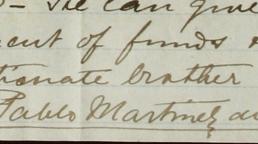 - He can give
ent of funds
tionate brother
Pablo Martinez